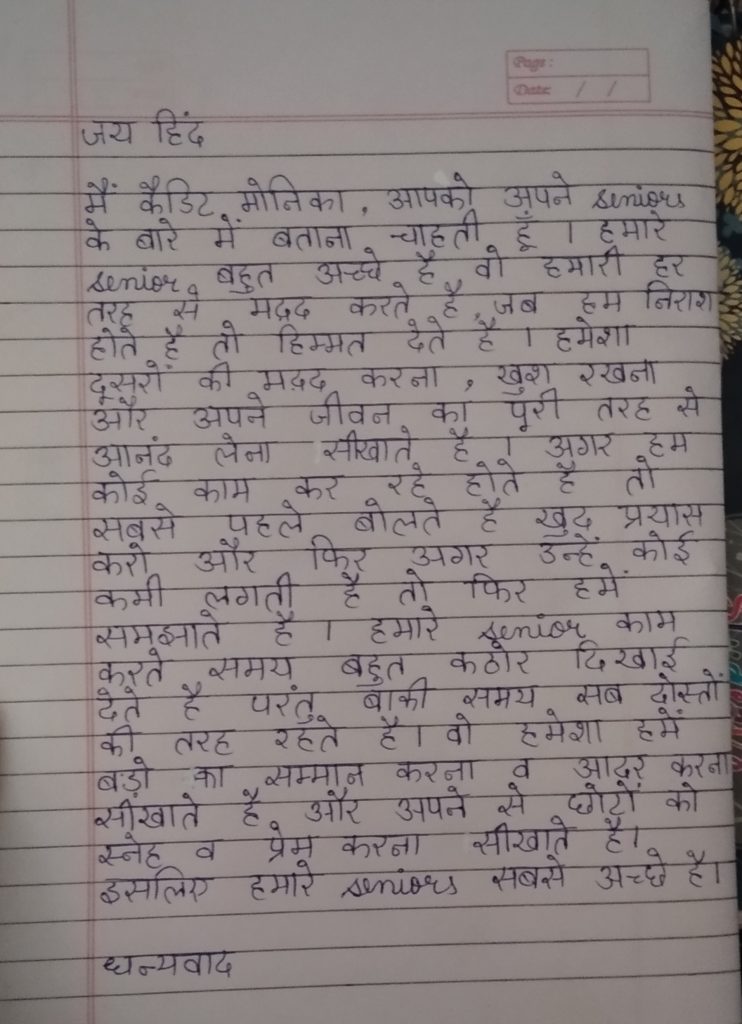 Page:
Date: / /
जय हिंद
मैं कैडिट मोनिका, आपको अपने seniors
के बारे में बताना चाहती हूँ । हमारे
senior, बहुत अच्छे है, वो हमारी हर
तरह से मद्द करते है, जब हम निराश
होते है तो हिम्मत देते है । हमेशा
दूसरों की मद्द करना, खुश रखना
और अपने जीवन का पूरी तरह से
आनंद लेना सीखाते है । अगर हम
कोई काम कर रहे होते है तो
सबसे पहले बोलते है खुद प्रयास
करो और फिर अगर उन्हें कोई
कमी लगती है तो फिर हमें
समझाते है । हमारे senior काम
करते समय बहुत कठोर दिखाई
देते है परंतु बाकी समय सब दोस्तों
की तरह रहते है । वो हमेशा हमें
बड़ो का सम्मान करना व आदर करना
सीखाते है, और अपने से छोटों को
स्नेह व प्रेम करना सीखाते है।
इसलिए हमारे seniors सबसे अच्छे है।
धन्यवाद